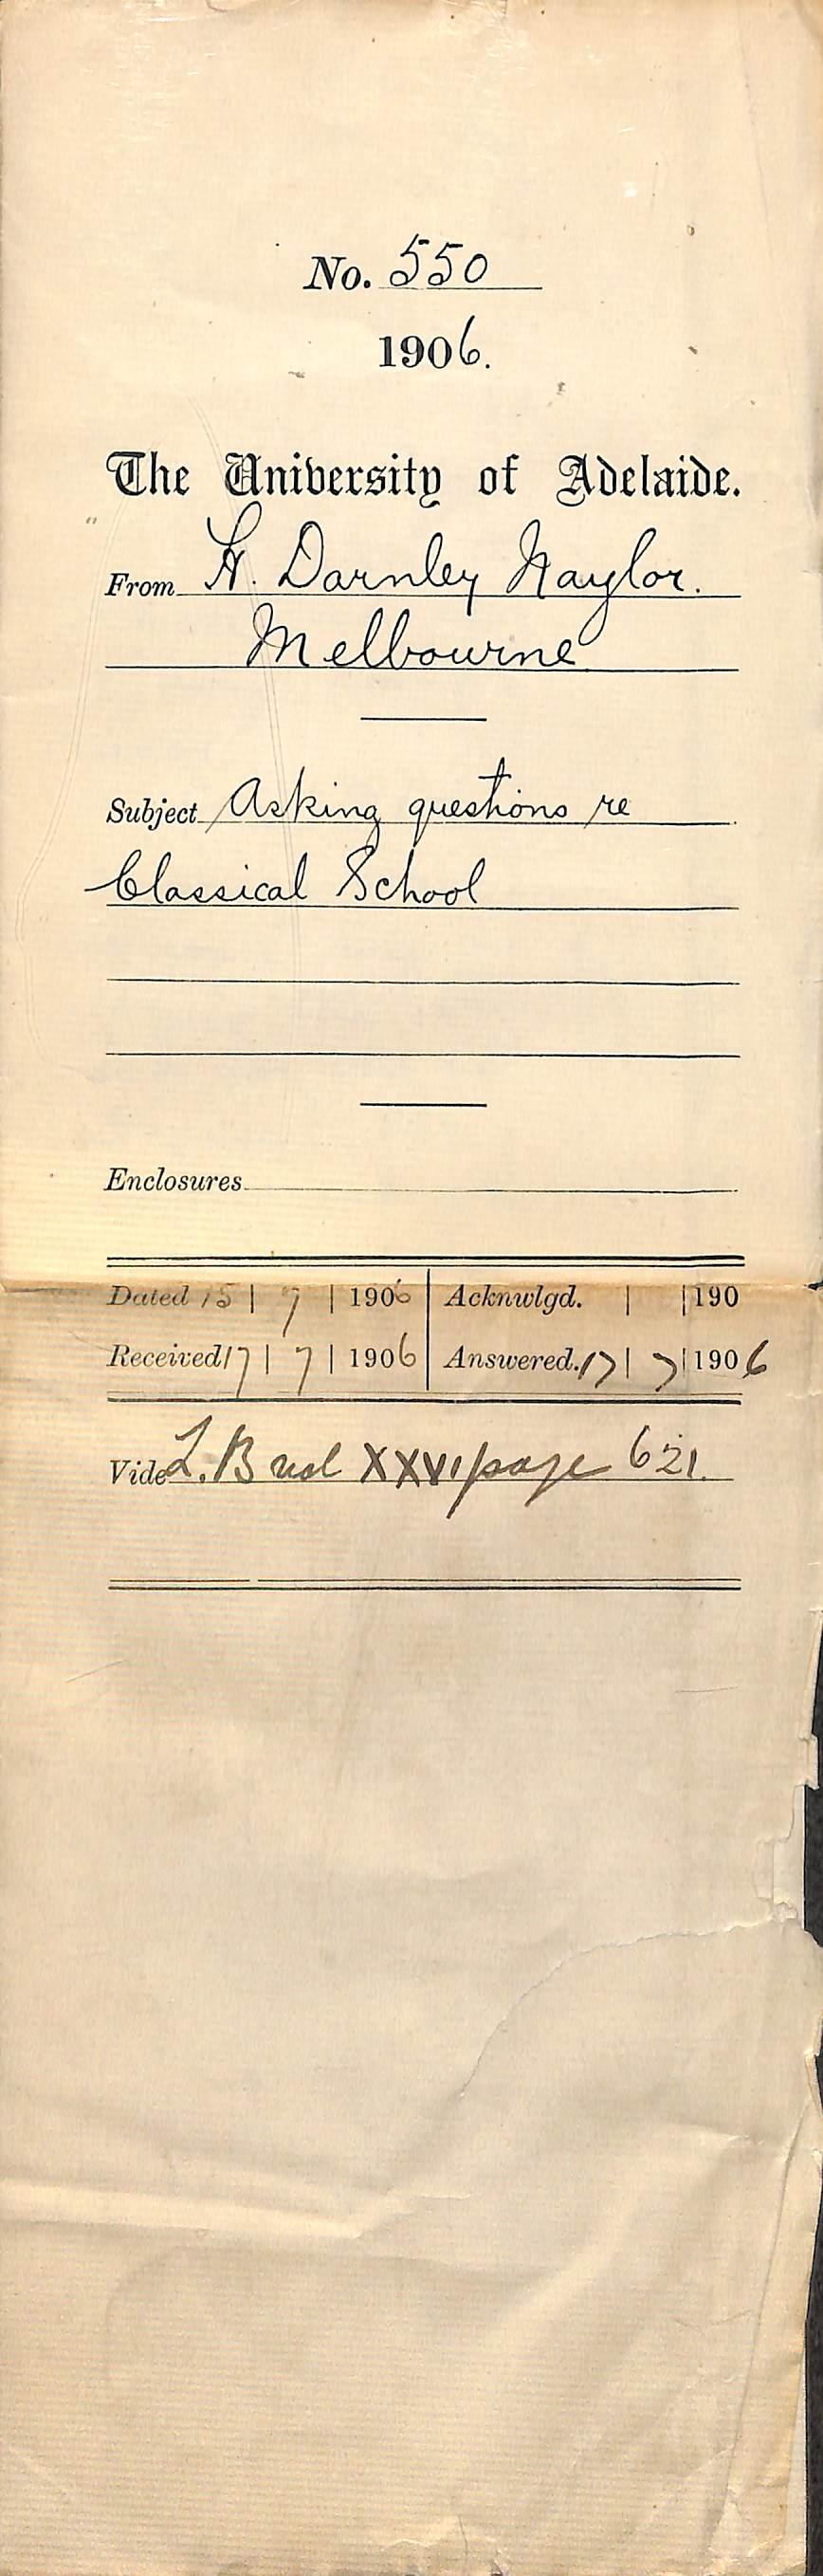 No. 550
1906.
The University of Adelaide.
From H. Darnley Naylor.
Melbourne
Subject Asking questions re
Classical School
Enclosures
Dated 15 | 7 | 1906 | Acknwlgd. | | 190
Received 17 | 7 | 1906 | Answered. 17 | 7 | 1906
Vide L. B vol XXVI page 621.